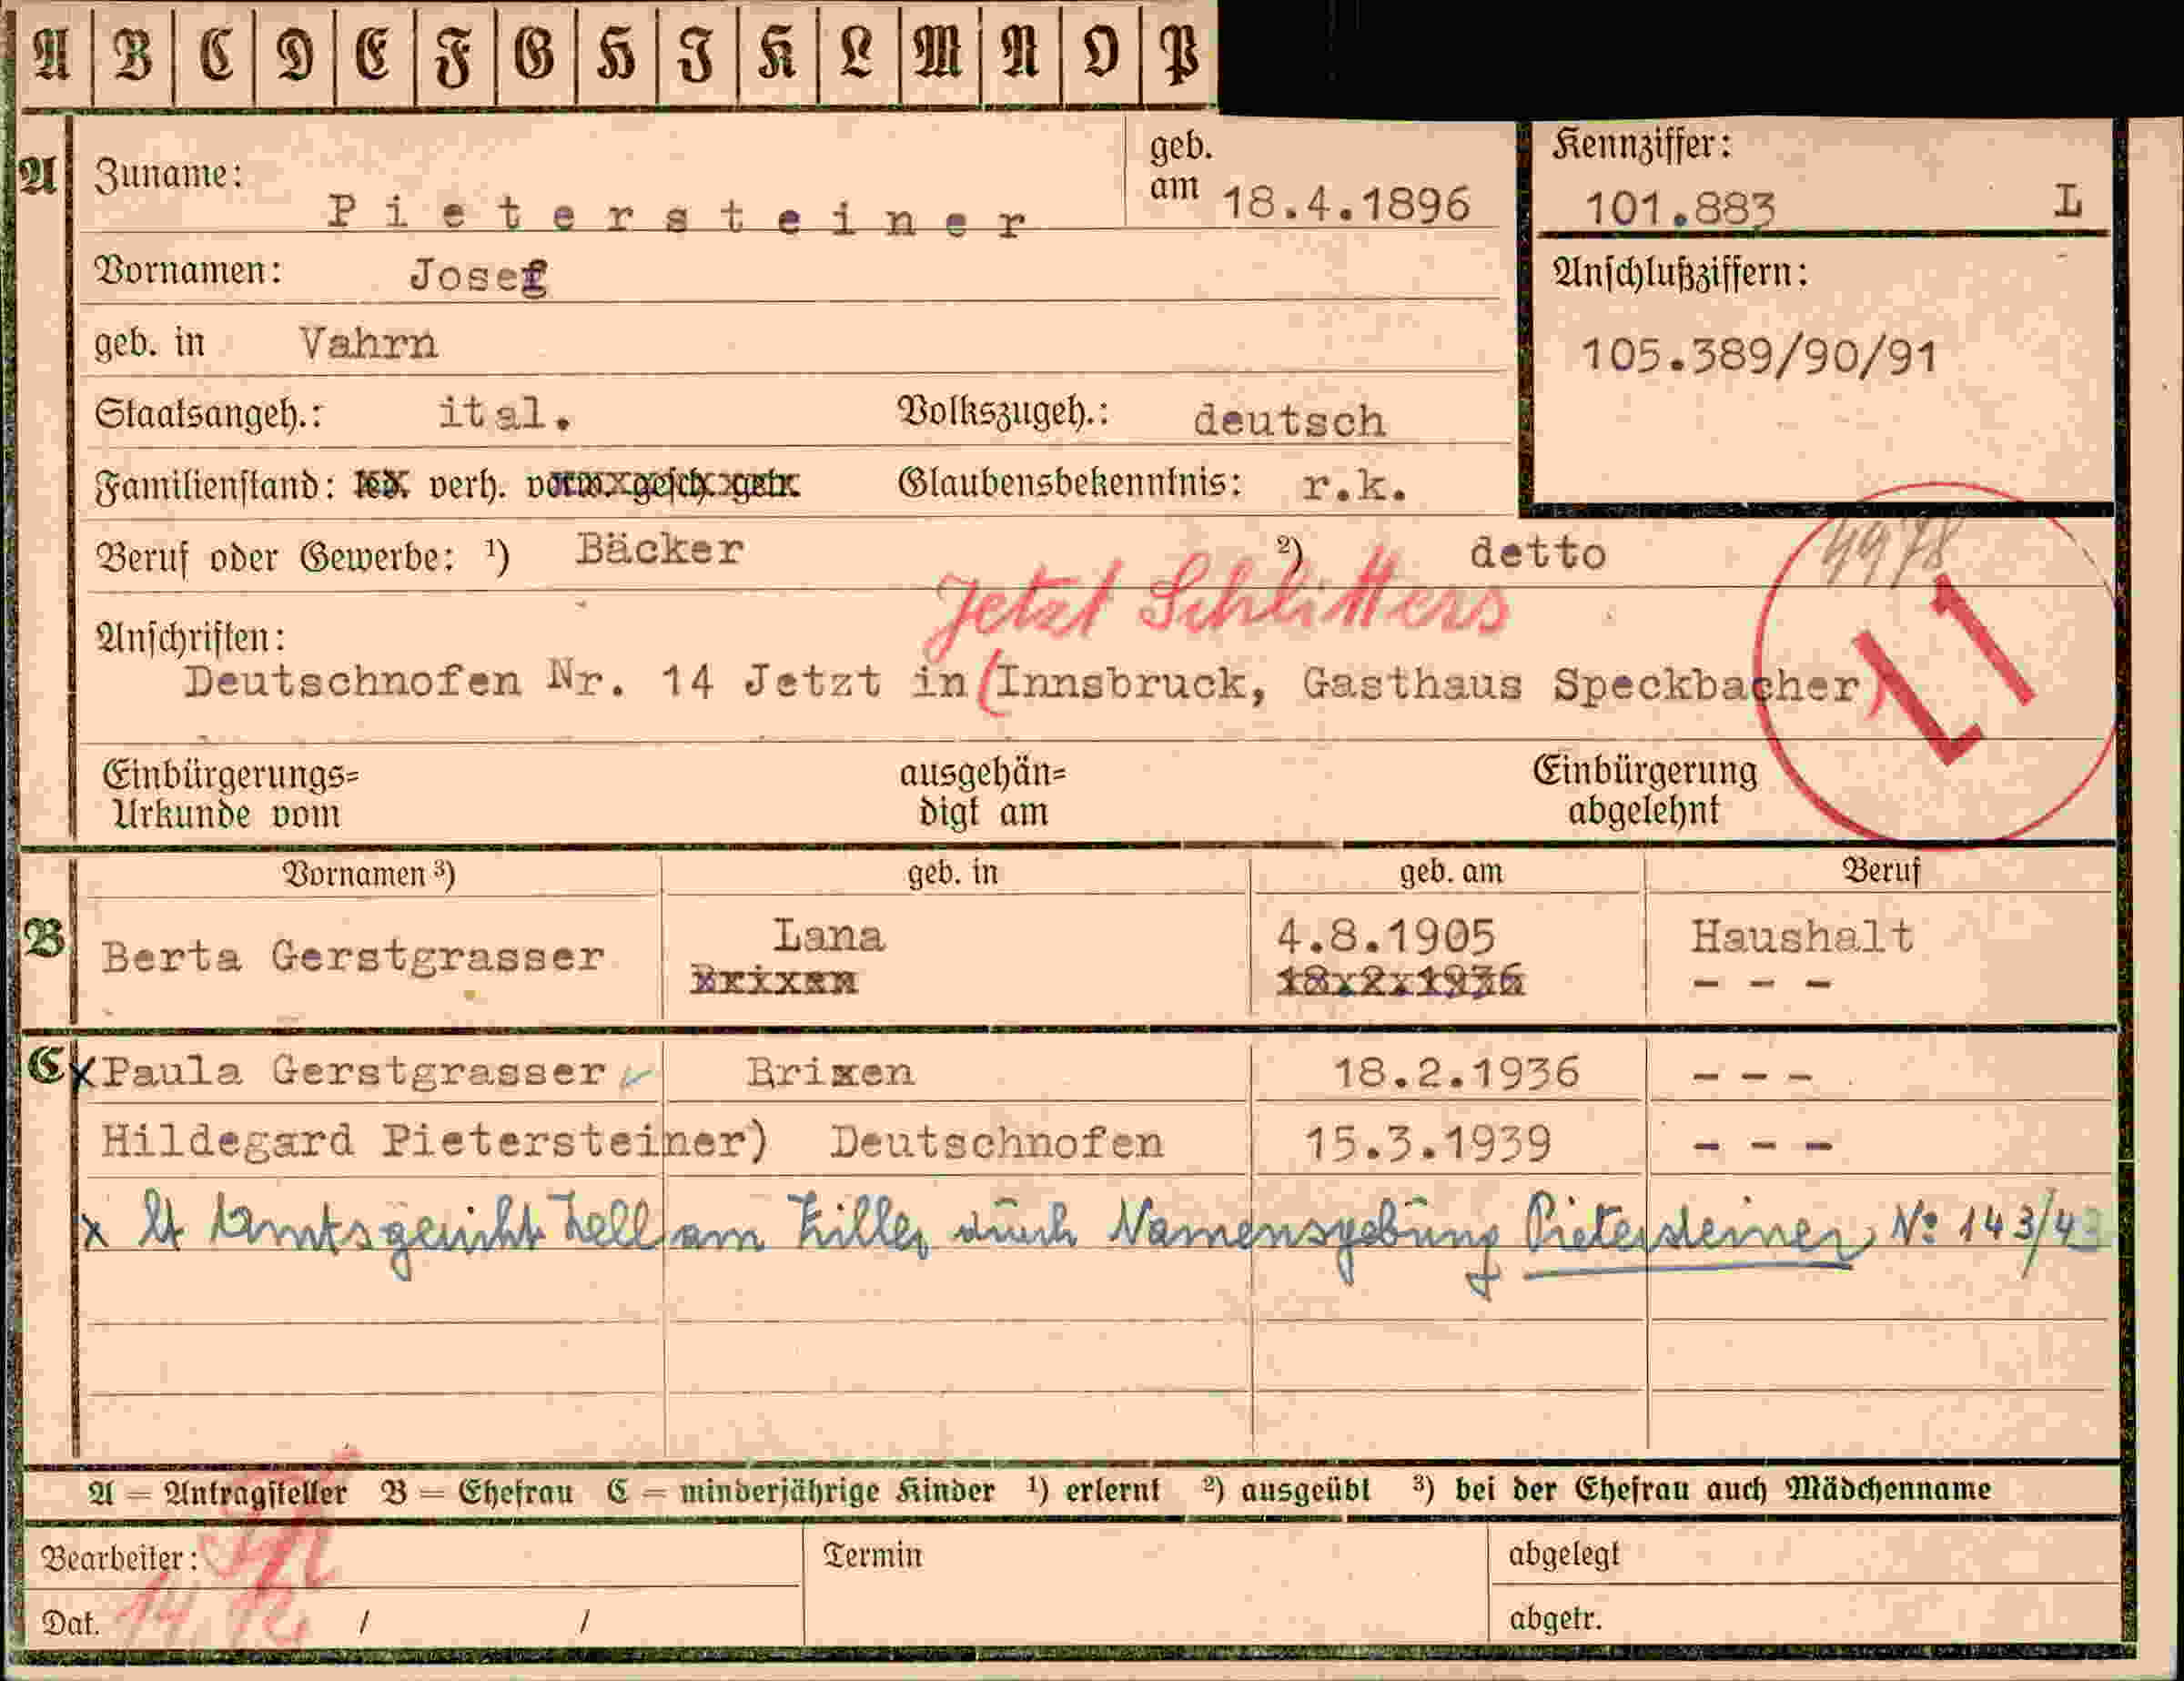 A B C D E F G H I K L M N O P
A Zuname: Pietersteiner geb. am 18.4.1896
Kennziffer: 101.883 L
Vornamen: Josef
Anschlußziffern:
105.389/90/91
geb. in Vahrn
Staatsangeh.: ital. Volkszugeh.: deutsch
Familienstand: verh. Glaubensbekenntnis: r.k.
Beruf oder Gewerbe: ¹) Bäcker ²) detto
4978
Jetzt Schlitters
Anschriften:
Deutschnofen Nr. 14 Jetzt in (Innsbruck, Gasthaus Speckbacher)
Einbürgerungs=
Urkunde vom
ausgehän=
digt am
Einbürgerung
abgelehnt
Vornamen ³) geb. in geb. am Beruf
B Berta Gerstgrasser Lana 4.8.1905 Haushalt
Brixen 18.2.1936 - - -
C x Paula Gerstgrasser Brixen 18.2.1936 - - -
Hildegard Pietersteiner) Deutschnofen 15.3.1939 - - -
x lt Amtsgericht Zell am Ziller durch Namensgebung Pietersteiner No 143/43
A = Antragsteller B = Ehefrau C = minderjährige Kinder ¹) erlernt ²) ausgeübt ³) bei der Ehefrau auch Mädchenname
Bearbeiter: Termin abgelegt
Dat. / / abgetr.